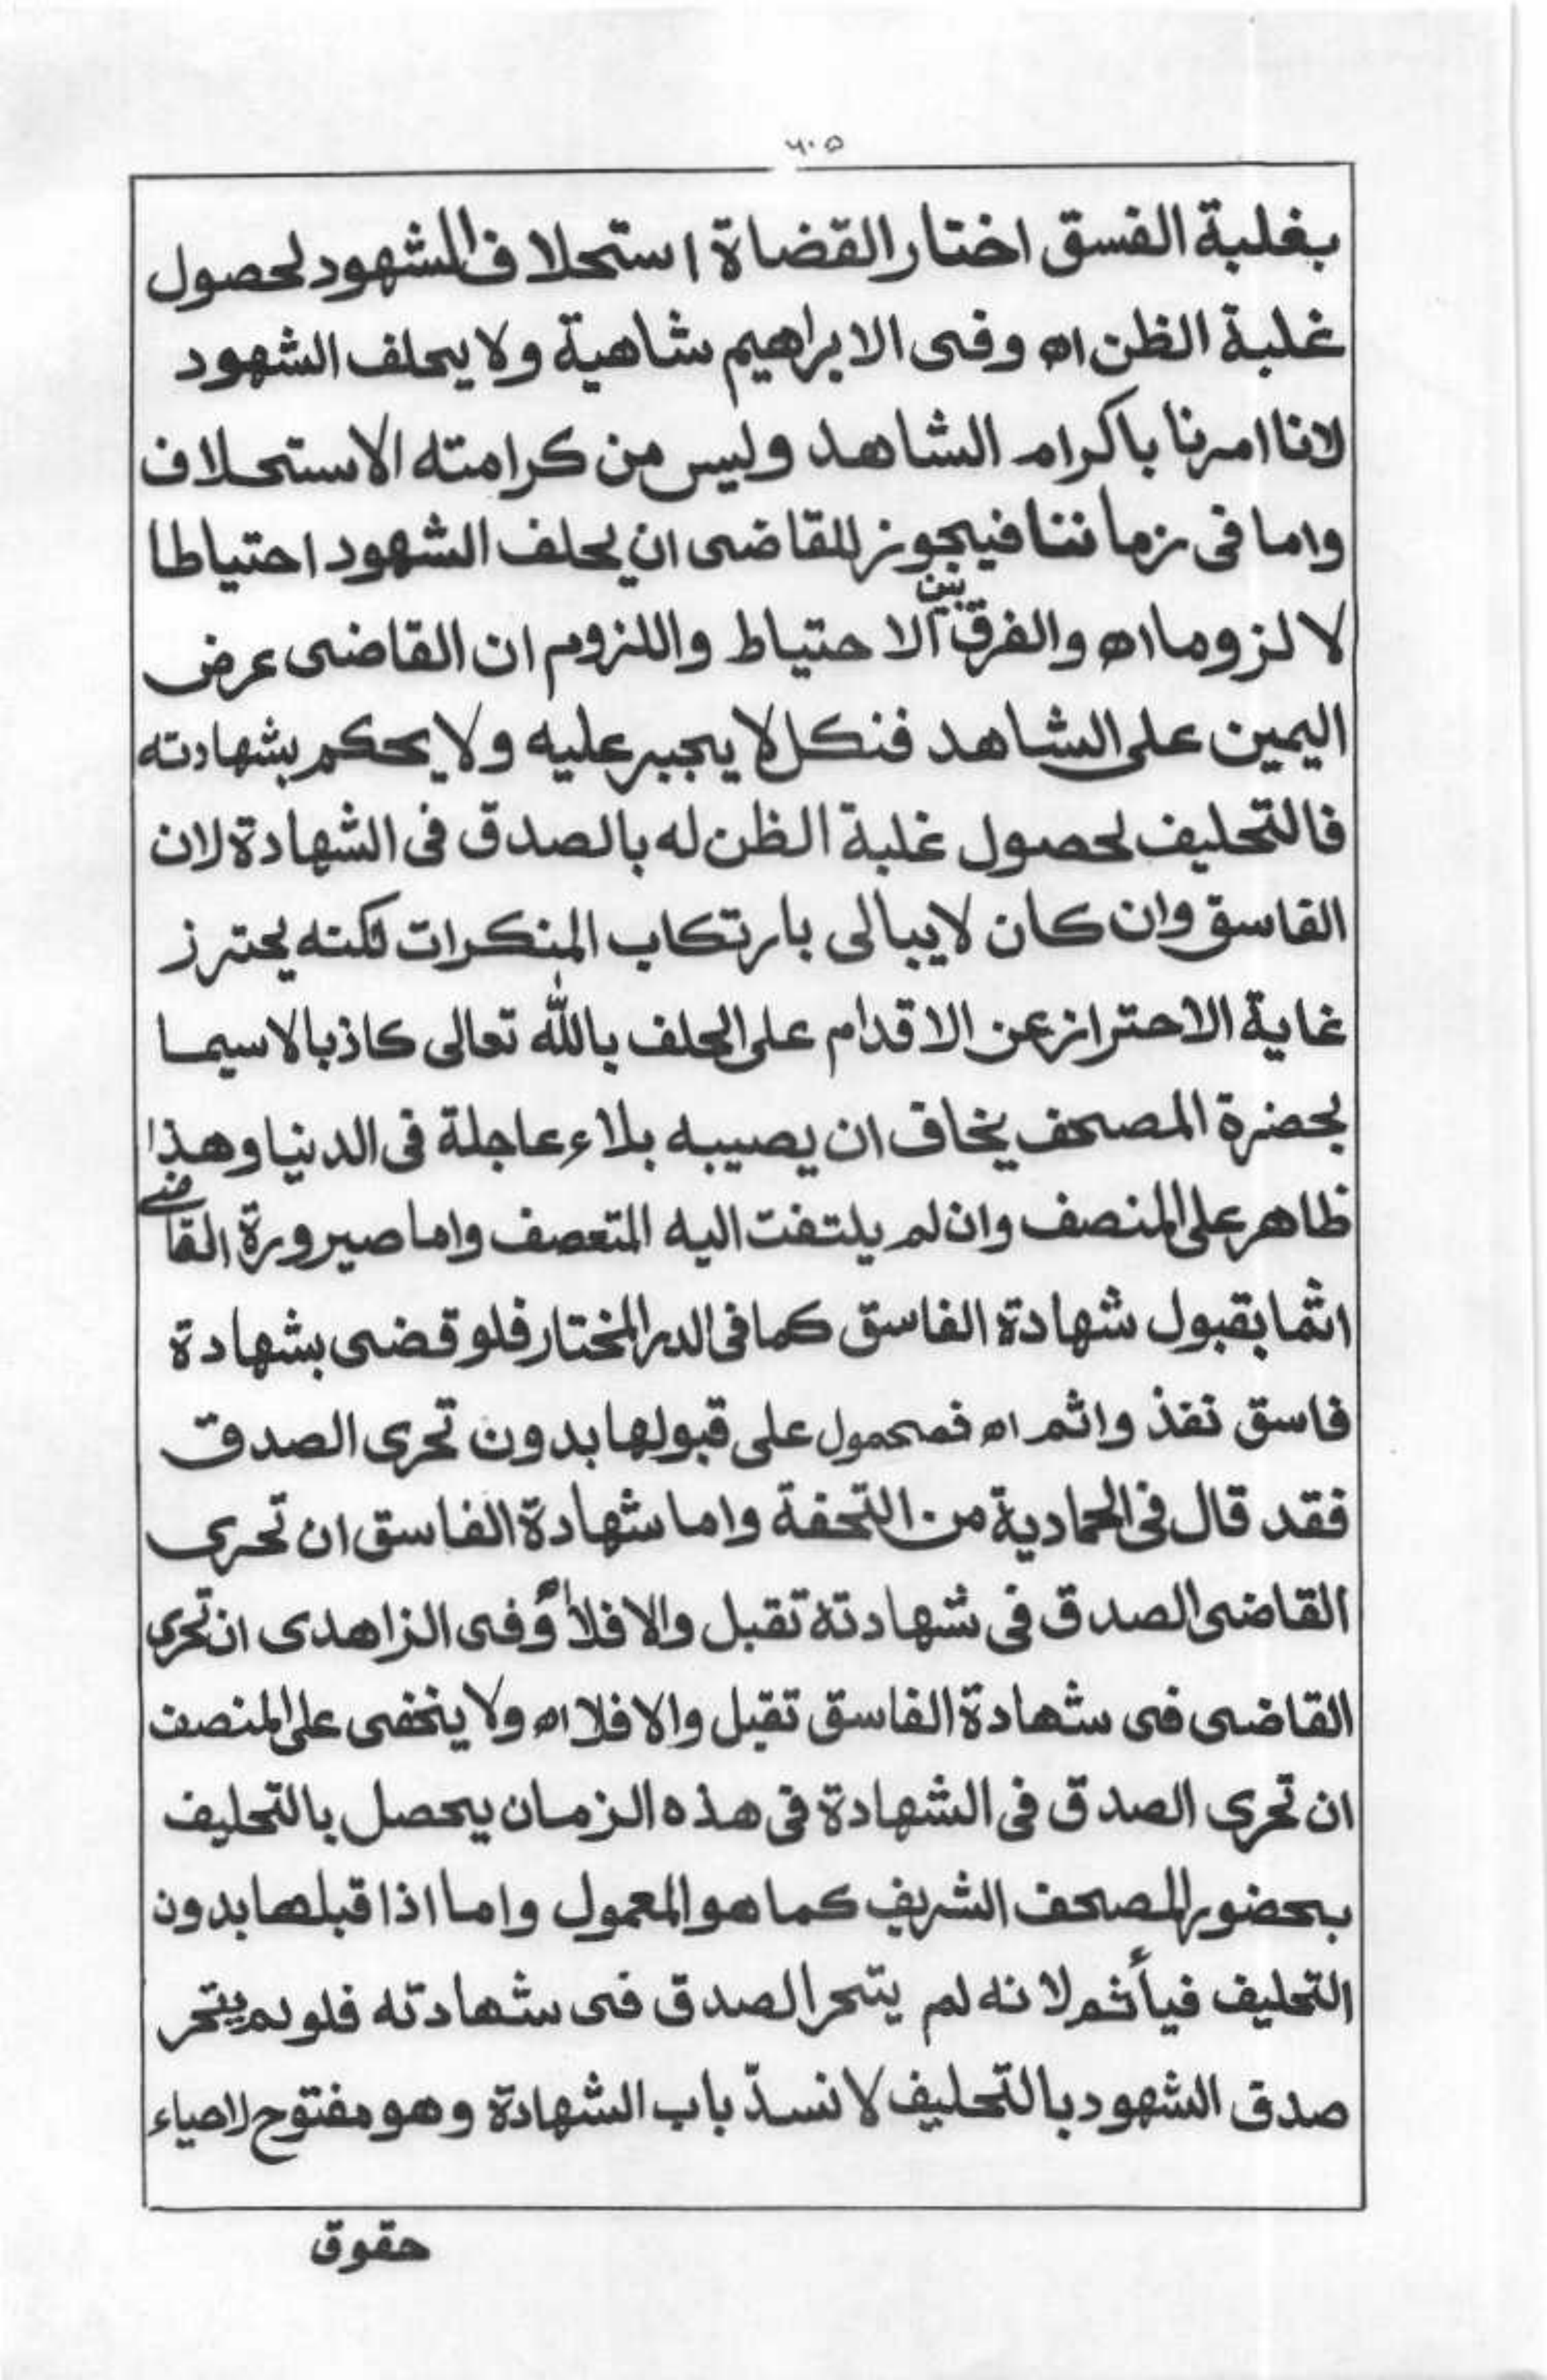 ٦٠٥
بغلبة الفسق اختار القضاة استحلاف الشهود لحصول
غلبة الظن اه وفى الابراهيم شاهية ولا يحلف الشهود
لانا امرنا باكرام الشاهد وليس من كرامته الاستحلاف
واما فى زماننا فيجوز للقاضى ان يحلف الشهود احتياطا
لا لزوما اه والفرق بين الاحتياط واللزوم ان القاضى عرض
اليمين على الشاهد فنكل لا يجبر عليه ولا يحكم بشهادته
فالتحليف لحصول غلبة الظن له بالصدق فى الشهادة لان
القاسق وان كان لا يبالى بارتكاب المنكرات لكنه يحترز
غاية الاحتراز عن الاقدام على الحلف بالله تعالى كاذبا لاسيما
بحضرة المصحف يخاف ان يصيبه بلاء عاجلة فى الدنيا وهذا
ظاهر على المنصف وان لم يلتفت اليه المتعصف واما صيرورة القاضى
اثما بقبول شهادة الفاسق كما فى الدر المختار فلو قضى بشهادة
فاسق نفذ واثم اه فمحمول على قبولها بدون تحرى الصدق
فقد قال فى الحمادية من التحفة واما شهادة الفاسق ان تحرى
القاضى الصدق فى شهادته تقبل والا فلا اه وفى الزاهدى ان تحرى
القاضى فى شهادة الفاسق تقبل والا فلا اه ولا يخفى على المنصف
ان تحرى الصدق فى الشهادة فى هذه الزمان يحصل بالتحليف
بحضور المصحف الشريف كما هو المعمول واما اذا قبلها بدون
التحليف فيأثم لانه لم يتحر الصدق فى شهادته فلو لم يتحر
صدق الشهود بالتحليف لانسدّ باب الشهادة وهو مفتوح لاحياء
حقوق